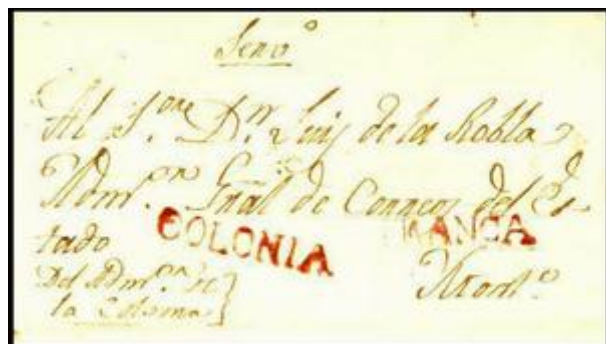 Servº
Al S.ᵒʳ Dⁿ Luis de la Robla
Admºʳ Gñal de Correos del Es-
tado
COLONIA
FRANCA
Del Admºʳ de
la Colonia
Mont.º